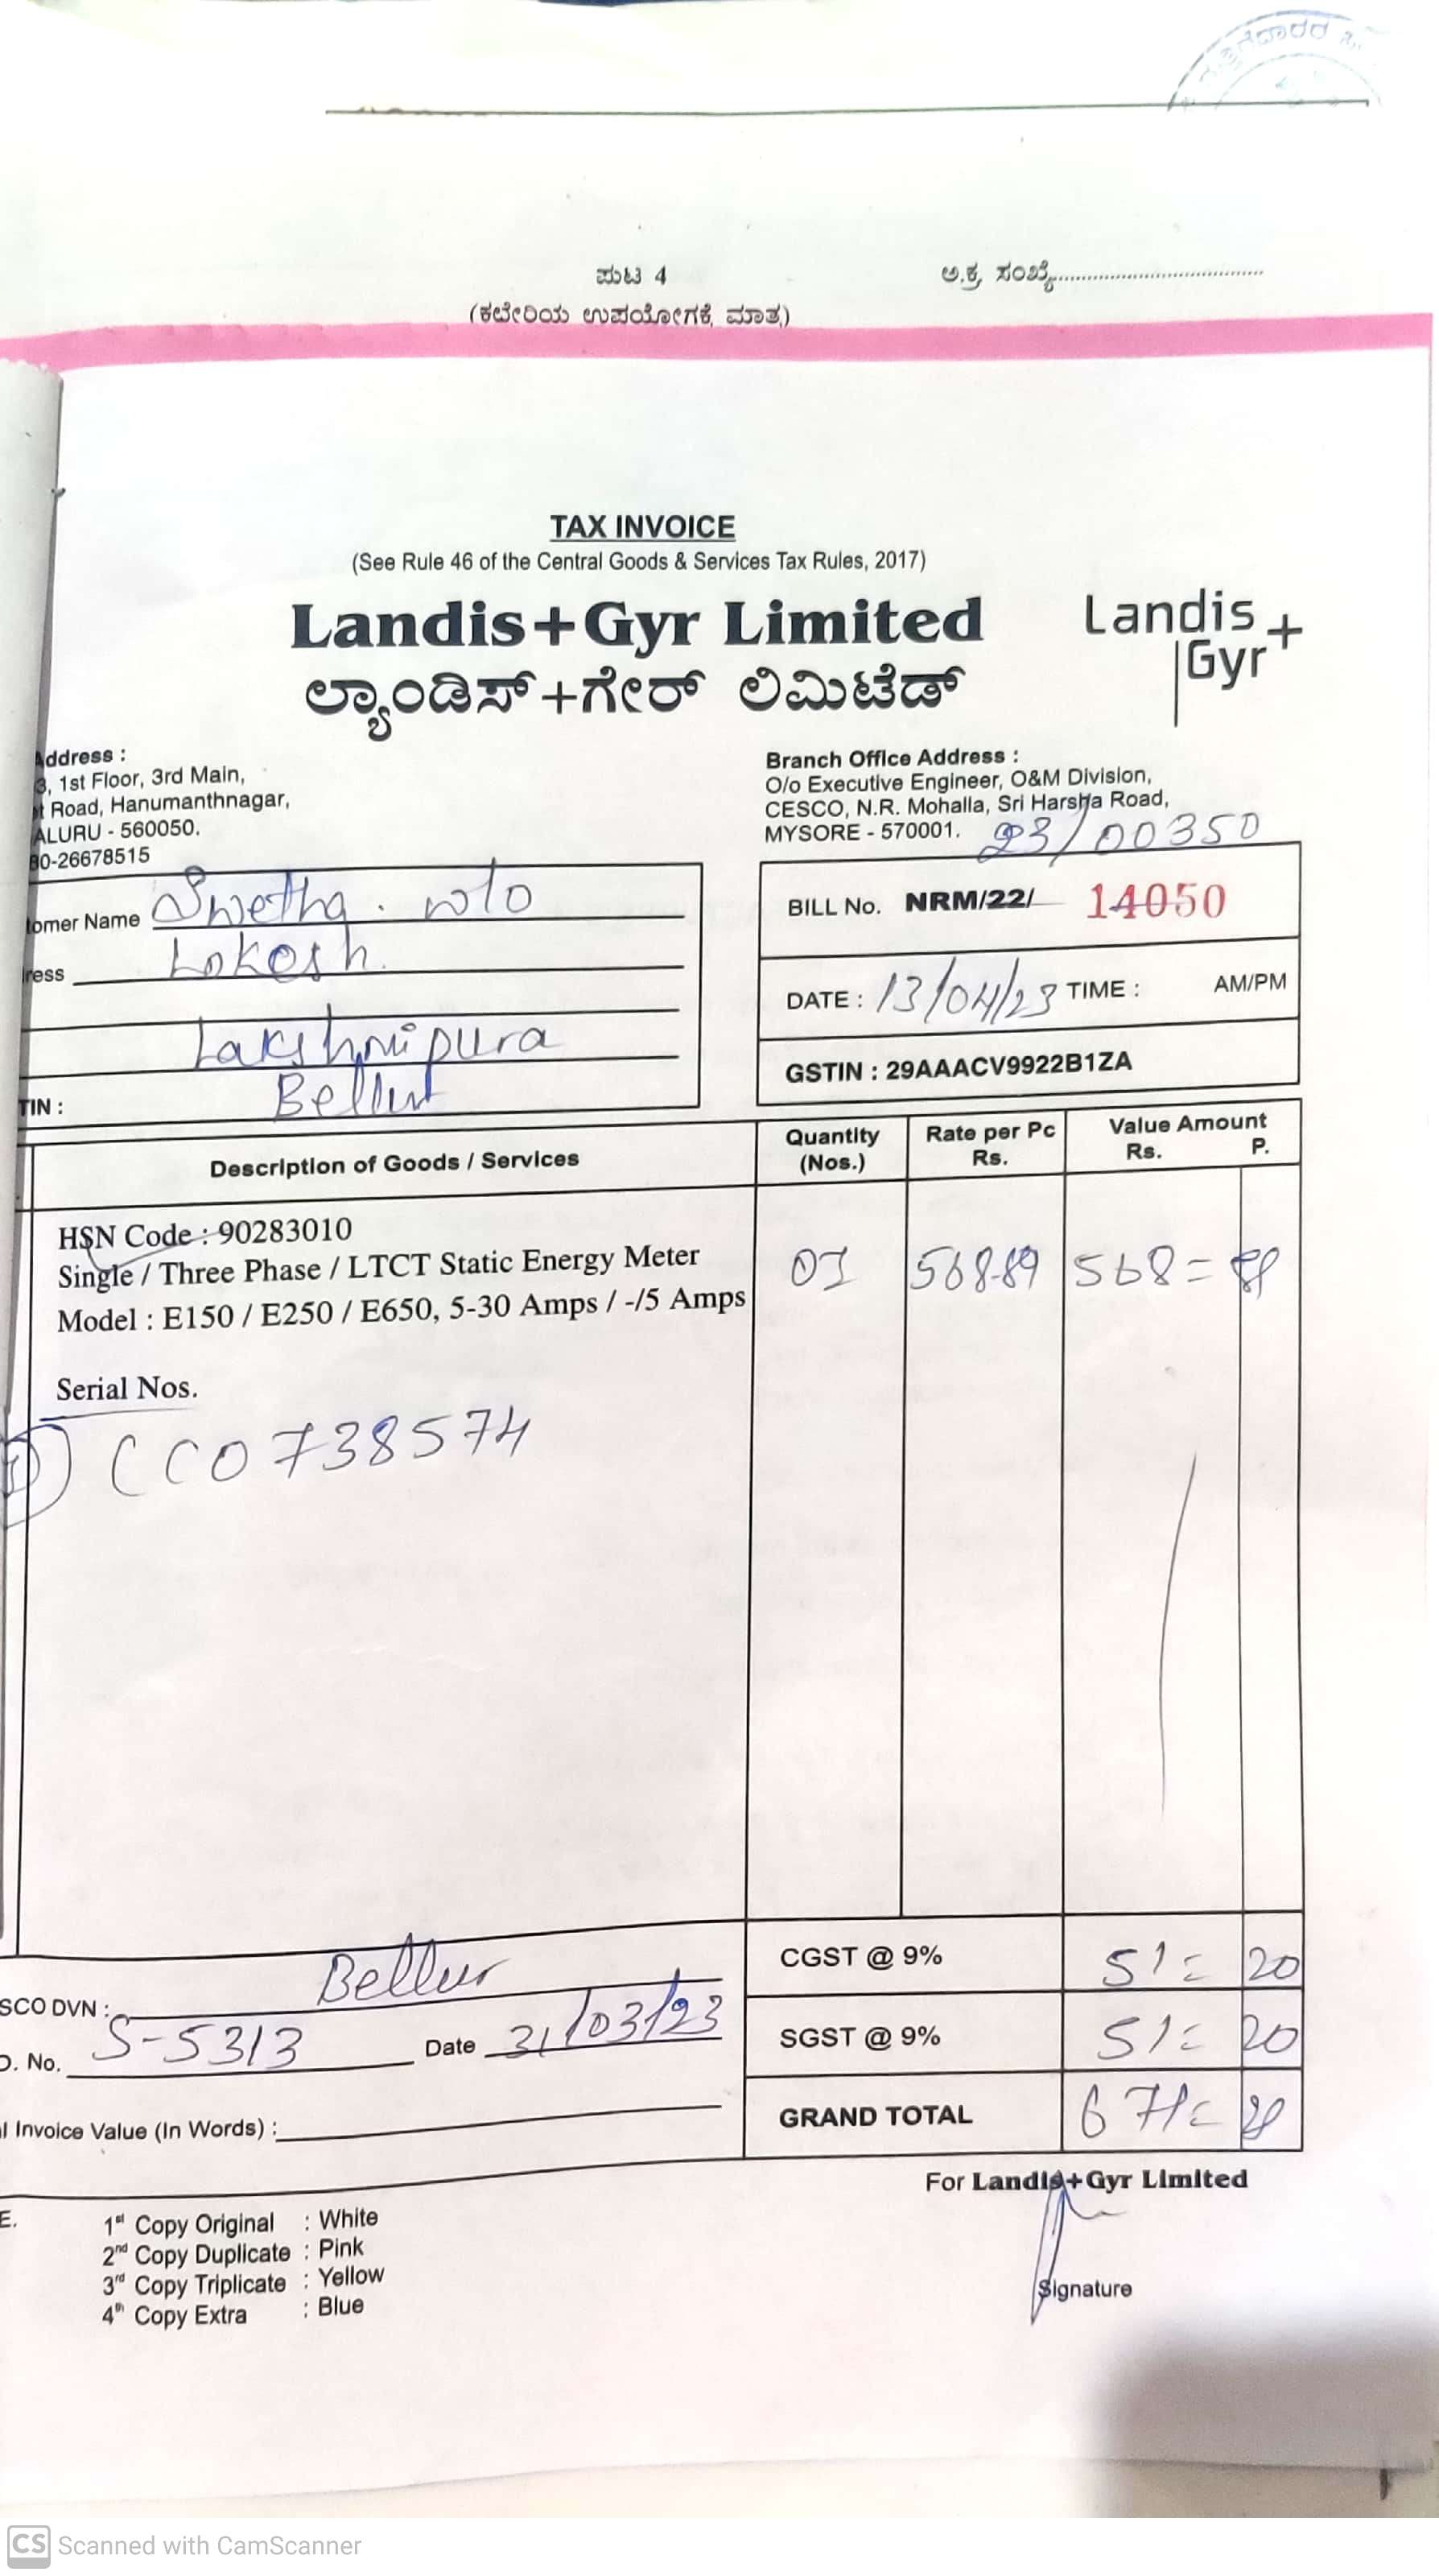 ಪುಟ 4
ಅ.ಕ್ರ. ಸಂಖ್ಯೆ......................................
(ಕಚೇರಿಯ ಉಪಯೋಗಕ್ಕೆ ಮಾತ್ರ)
TAX INVOICE
(See Rule 46 of the Central Goods & Services Tax Rules, 2017)
Landis+Gyr Limited
Landis+
Gyr
ಲ್ಯಾಂಡಿಸ್+ಗೇರ್ ಲಿಮಿಟೆಡ್
ddress :
3, 1st Floor, 3rd Main,
t Road, Hanumanthnagar,
ALURU - 560050.
80-26678515
Branch Office Address :
O/o Executive Engineer, O&M Division,
CESCO, N.R. Mohalla, Sri Harsha Road,
MYSORE - 570001.
23/00350
tomer Name Swetha . w/o
ress Lokesh.
Lakshmipura
TIN : Bellur
BILL No. NRM/22/ 14050
DATE : 13/04/23 TIME : AM/PM
GSTIN : 29AAACV9922B1ZA
Description of Goods / Services
Quantity (Nos.)
Rate per Pc Rs.
Value Amount
Rs. P.
HSN Code : 90283010
Single / Three Phase / LTCT Static Energy Meter
Model : E150 / E250 / E650, 5-30 Amps / -/5 Amps
01 568-89 568=
Serial Nos.
1) CC0738574
CGST @ 9% 51= 20
SGST @ 9% 51= 20
GRAND TOTAL 671=
SCO DVN : Bellur
O. No. S-5313 Date 31/03/23
l Invoice Value (In Words) :
For Landis+Gyr Limited
Signature
E.
1st Copy Original : White
2nd Copy Duplicate : Pink
3rd Copy Triplicate : Yellow
4th Copy Extra : Blue
CS Scanned with CamScanner